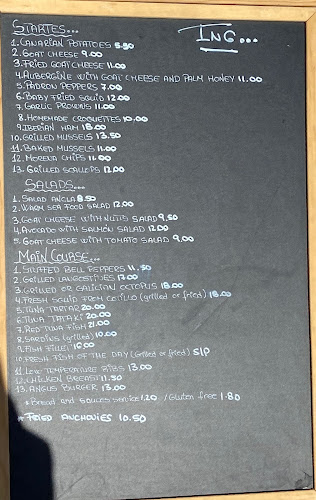 STARTES...
ING...
1. CANARIAN POTATOES 5.50
2. GOAT CHEESE 9.00
3. FRIED GOAT CHEESE 11.00
4. AUBERGINE WITH GOAT CHEESE AND PALM HONEY 11.00
5. PADRON PEPPERS 7.00
6. BABY FRIED SQUID 12.00
7. GARLIC PROWNS 11.00
8. HOMEMADE CROQUETTES 10.00
9. IBERIAN HAM 18.00
10. GRILLED MUSSELS 13.50
11. BAKED MUSSELS 11.00
12. MORENA CHIPS 11.00
13. GRILLED SCALLOPS 12.00
SALADS...
1. SALAD ANCLA 8.50
2. WARM SEA FOOD SALAD 12.00
3. GOAT CHEESE WITH NUTIS SALAD 9.50
4. AVOCADO WITH SALMON SALAD 12.00
5. GOAT CHEESE WITH TOMATO SALAD 9.00
MAIN COURSE...
1. STUFFED BELL PEPPERS 11.50
2. GRILLED LANGOSTINES 17.00
3. GRILLED OR GALICIAN OCTOPUS 18.00
4. FRESH SQUID FROM (grilled or fried) 18.00
5. TUNA TARTAR 20.00
6. TUNA TATAKI 20.00
7. RED TUNA FISH 21.00
8. SARDINS (grilled) 10.00
9. FISH FILLET 16.00
10. FRESH FISH OF THE DAY (Grilled or fried) S/P
11. LOW TEMPERATURE RIBS 13.00
12. CHICKEN BREAST 11.50
13. ANGUS BURGER 13.00
* Bread and sauces service 1.20 / Gluten free 1.80
* FRIED ANCHOVIES 10.50